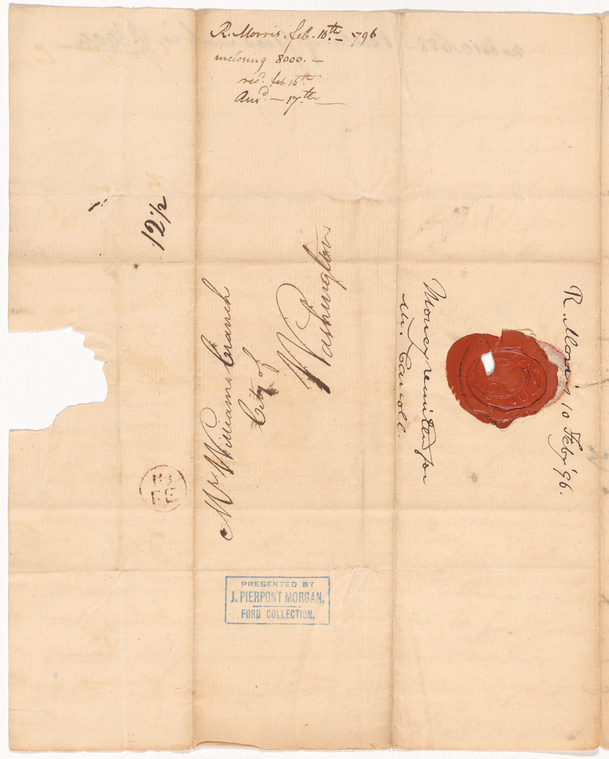 R. Morris. feb. 10th — 796
inclosing 8000. —
recd. feb. 16th
Ansd — 17th —
12½
Mr. William Cranch
City of
Washington
Money remitted for
Mr. Caroll.
R. Morris 10 Feby '96.
FE
PRESENTED BY
J. PIERPONT MORGAN.
FORD COLLECTION.